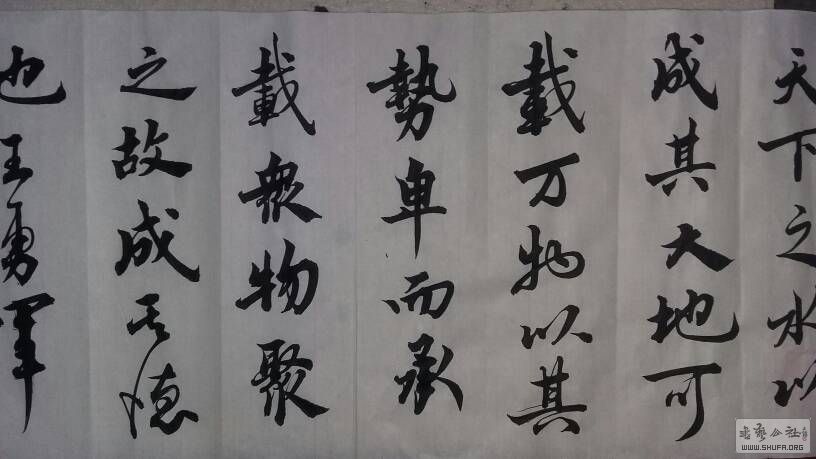 天下之水以
成其大地可
載万物以其
勢卑而承
載衆物聚
之故成其德
也王勇
書藝公社
WWW.SHUFA.ORG